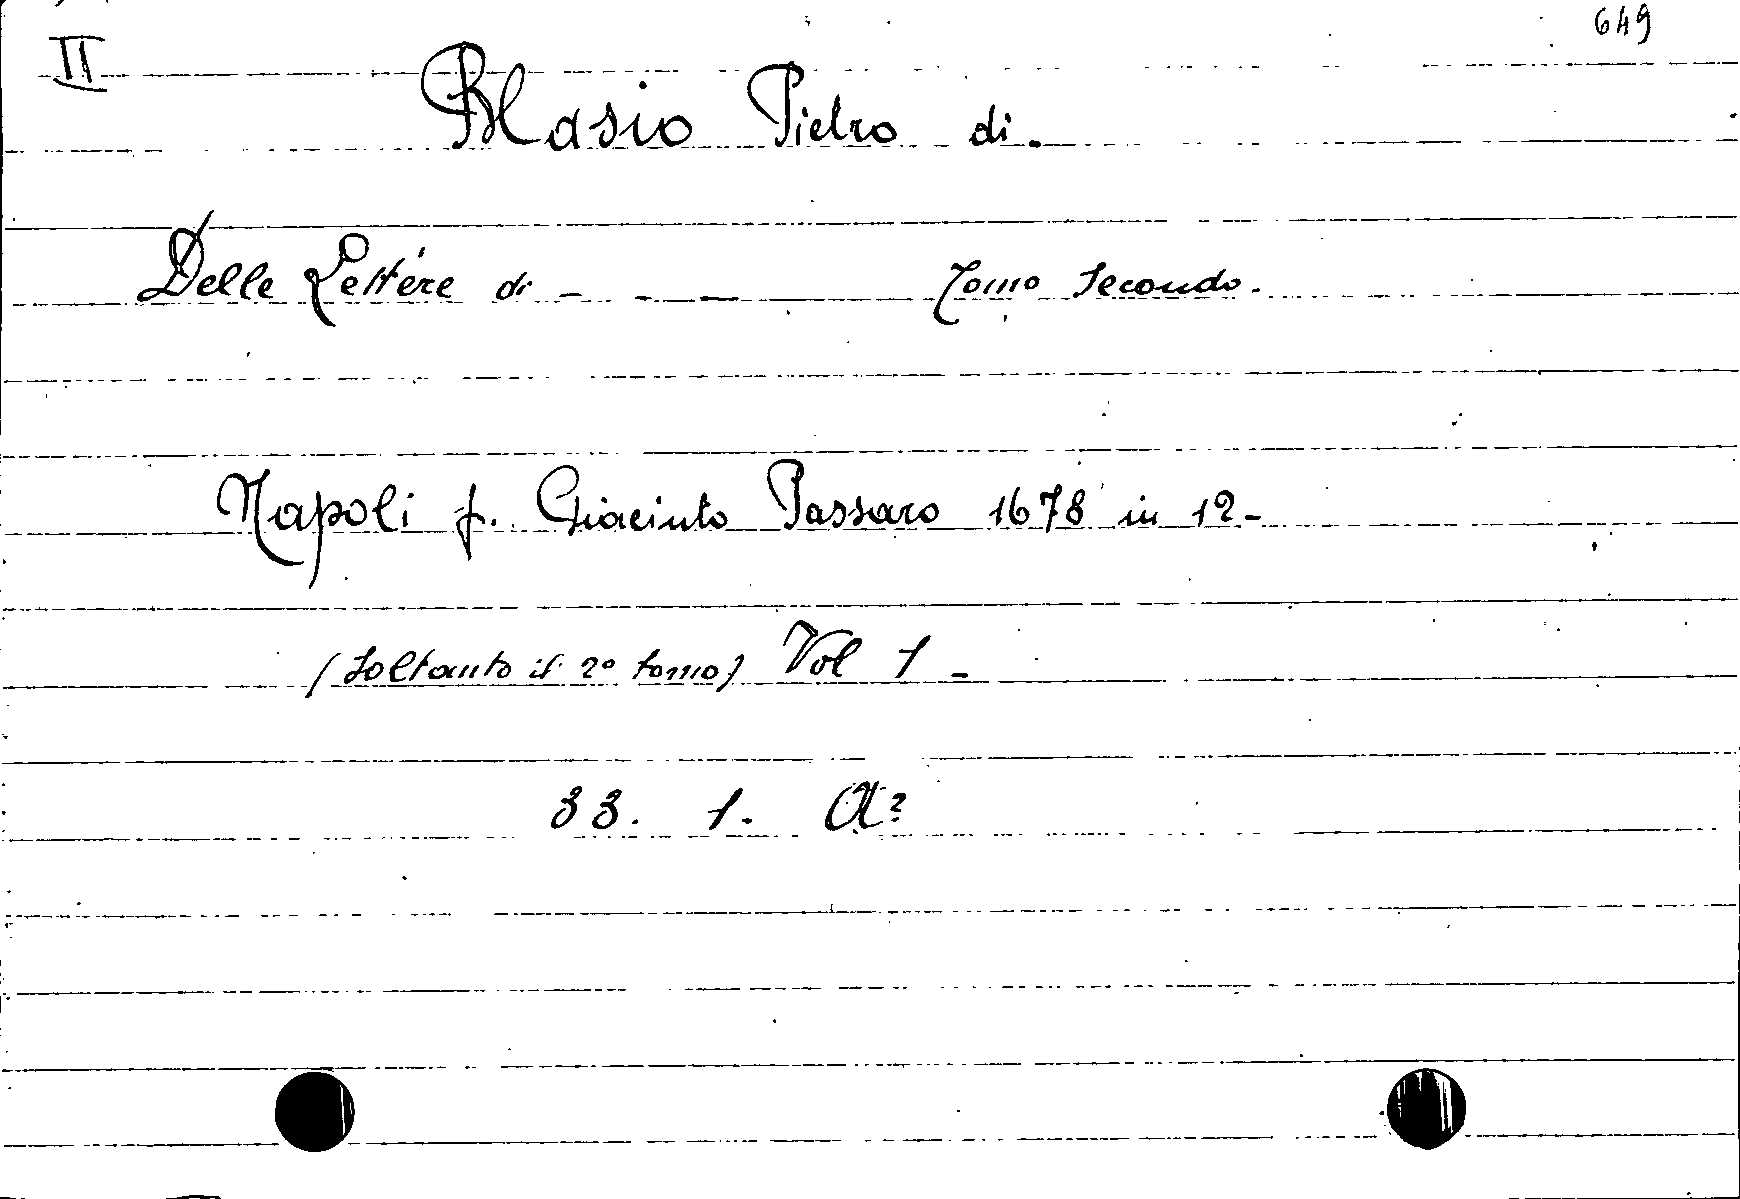 II
649
Blasio Pietro di.
Delle Lettere di - - — Tomo Secondo.
Napoli p. Giacinto Passaro 1678 in 12-
(Soltanto il 2º tomo) Vol 1 -
33. 1. A?